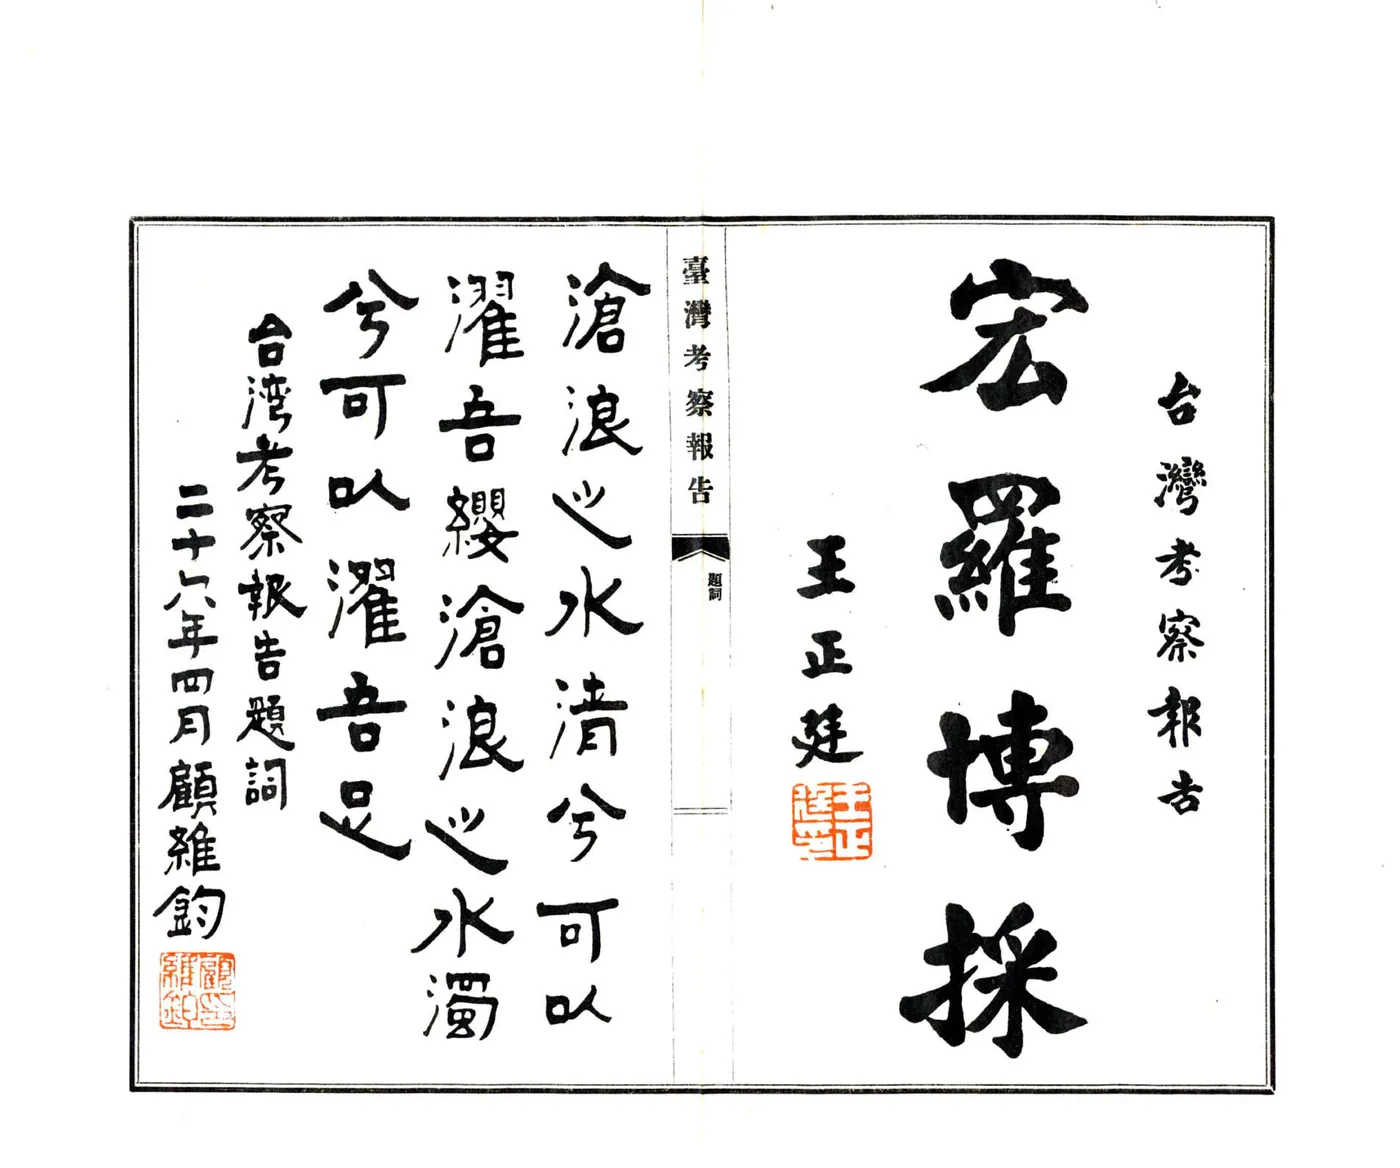 台灣考察報告
宏羅博採
王正廷
臺灣考察報告
題詞
滄浪之水清兮可以
濯吾纓滄浪之水濁
兮可以濯吾足
台湾考察報告題詞
二十六年四月顧維鈞